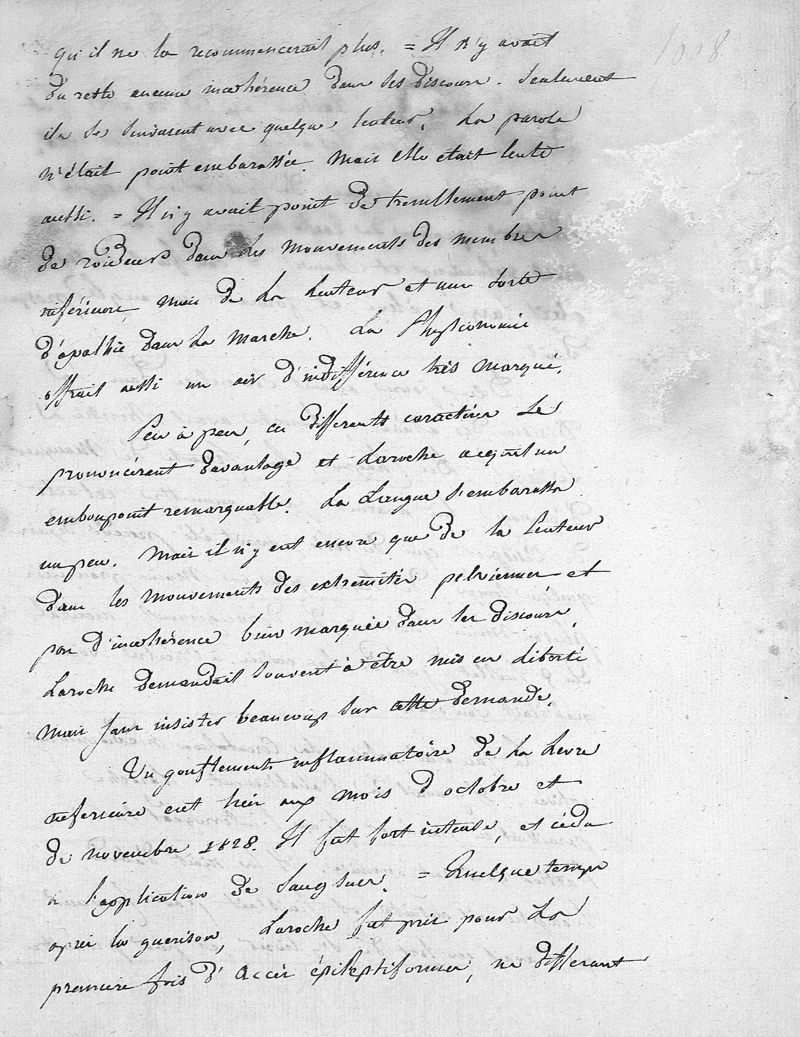 1008
qu'il ne la recommencerait plus. = Il n'y avait
du reste aucune incohérence dans les discours. Seulement
ils se suivaient avec quelque lenteur. La parole
n'était point embarassée. Mais elle était lente
aussi. = Il n'y avait point de tremblement point
de roideur dans les mouvements des membres
inférieurs, mais de la lenteur et une sorte
d'apathie dans la marche. La Physionomie
offrait aussi un air d'indifférence très marqué.
Peu à peu, ces différents caractères se
prononcèrent davantage et Laroche acquit un
embonpoint remarquable. La Langue s'embarassa
un peu. Mais il n'y eut encore que de la lenteur
dans les mouvements des extremités pelviennes et
pas d'incohérence bien marquée dans les discours.
Laroche demandait souvent à être mis en liberté
mais sans insister beaucoup sur cette demande.
Un gonflement inflammatoire de la levre
inferieure eut lieu aux mois d'octobre et
de novembre 1828. Il fut fort intense, et céda
à l'application de Sangsues. = Quelque temps
après la guerison, Laroche fut pris pour la
premiere fois d'accès épileptiformes, ne differant